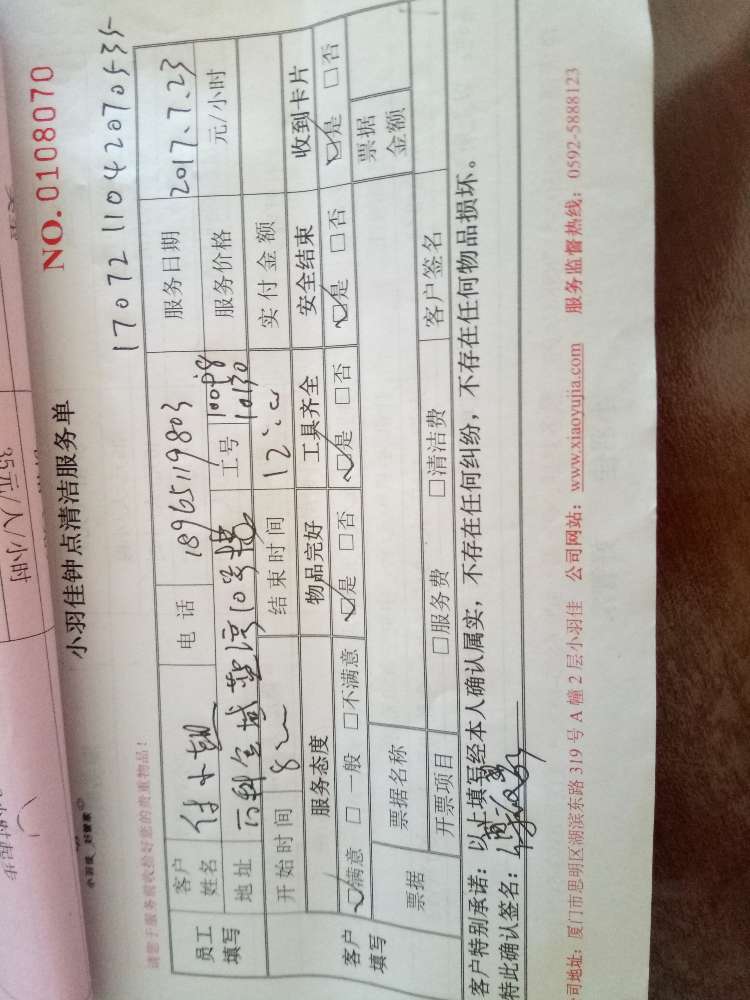 35元/人/小时
小羽佳钟点清洁服务单
NO.0108070
请您于服务前收拾好您的贵重物品！
1707211042070535
员工填写 客户姓名 付小姐 电话 18965119803 服务日期 2017.7.23
地址 万科金域蓝湾10号楼 工号 10098 10130 服务价格 元/小时
开始时间 8:00 结束时间 12:00 实付金额
客户填写 服务态度 物品完好 工具齐全 安全结束 收到卡片
☑满意 □一般 □不满意 ☑是 □否 ☑是 □否 ☑是 □否 ☑是 □否
票据 票据名称 票据金额
开票项目 □服务费 □清洁费 客户签名
客户特别承诺：以上填写经本人确认属实，不存在任何纠纷，不存在任何物品损坏。
特此确认签名：
司地址：厦门市思明区湖滨东路319号A幢2层小羽佳 公司网站：www.xiaoyujia.com 服务监督热线：0592-5888123